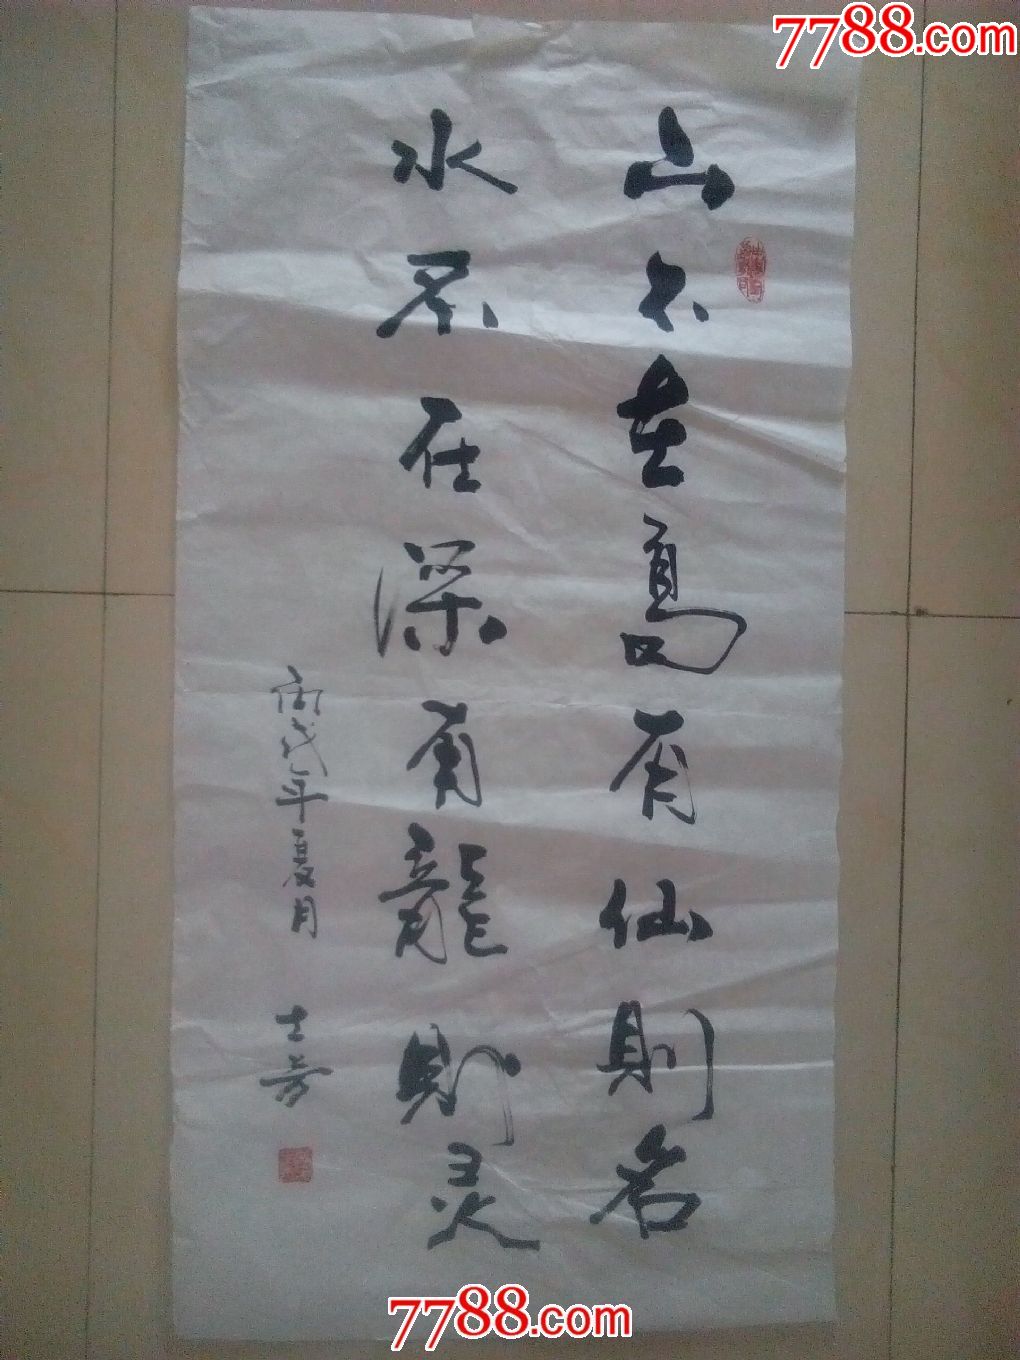 7788.com
山不在高有仙则名
水不在深有龍则灵
丙戌年夏月 士芳
7788.com